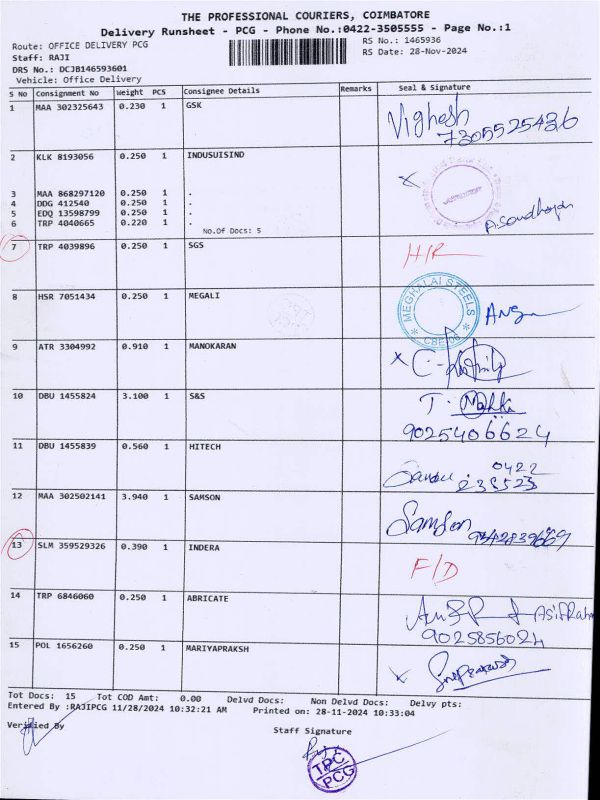 THE PROFESSIONAL COURIERS, COIMBATORE
Delivery Runsheet - PCG - Phone No.:0422-3505555 - Page No.:1
Route: OFFICE DELIVERY PCG RS No.: 1465936
Staff: RAJI RS Date: 28-Nov-2024
DRS No.: DCJB146593601
Vehicle: Office Delivery
S No Consignment No Weight PCS Consignee Details Remarks Seal & Signature
1 MAA 302325643 0.230 1 GSK Vighesh
7305525436
2 KLK 8193056 0.250 1 INDUSUISIND
3 MAA 868297120 0.250 1 .
4 DDG 412540 0.250 1 .
5 EDQ 13598799 0.250 1 .
6 TRP 4040665 0.220 1 .
No.Of Docs: 5
7 TRP 4039896 0.250 1 SGS H/R
8 HSR 7051434 0.250 1 MEGALI MEGHALAI STEELS CBE-06
9 ATR 3304992 0.910 1 MANOKARAN
10 DBU 1455824 3.100 1 S&S
9025406624
11 DBU 1455839 0.560 1 HITECH 0422
233523
12 MAA 302502141 3.940 1 SAMSON Samson
9342839669
13 SLM 359529326 0.390 1 INDERA F/D
14 TRP 6846060 0.250 1 ABRICATE
9025856024
15 POL 1656260 0.250 1 MARIYAPRAKSH
Tot Docs: 15 Tot COD Amt: 0.00 Delvd Docs: Non Delvd Docs: Delvy pts:
Entered By :RAJIPCG 11/28/2024 10:32:21 AM Printed on: 28-11-2024 10:33:04
Verified By Staff Signature
TPC
PCG